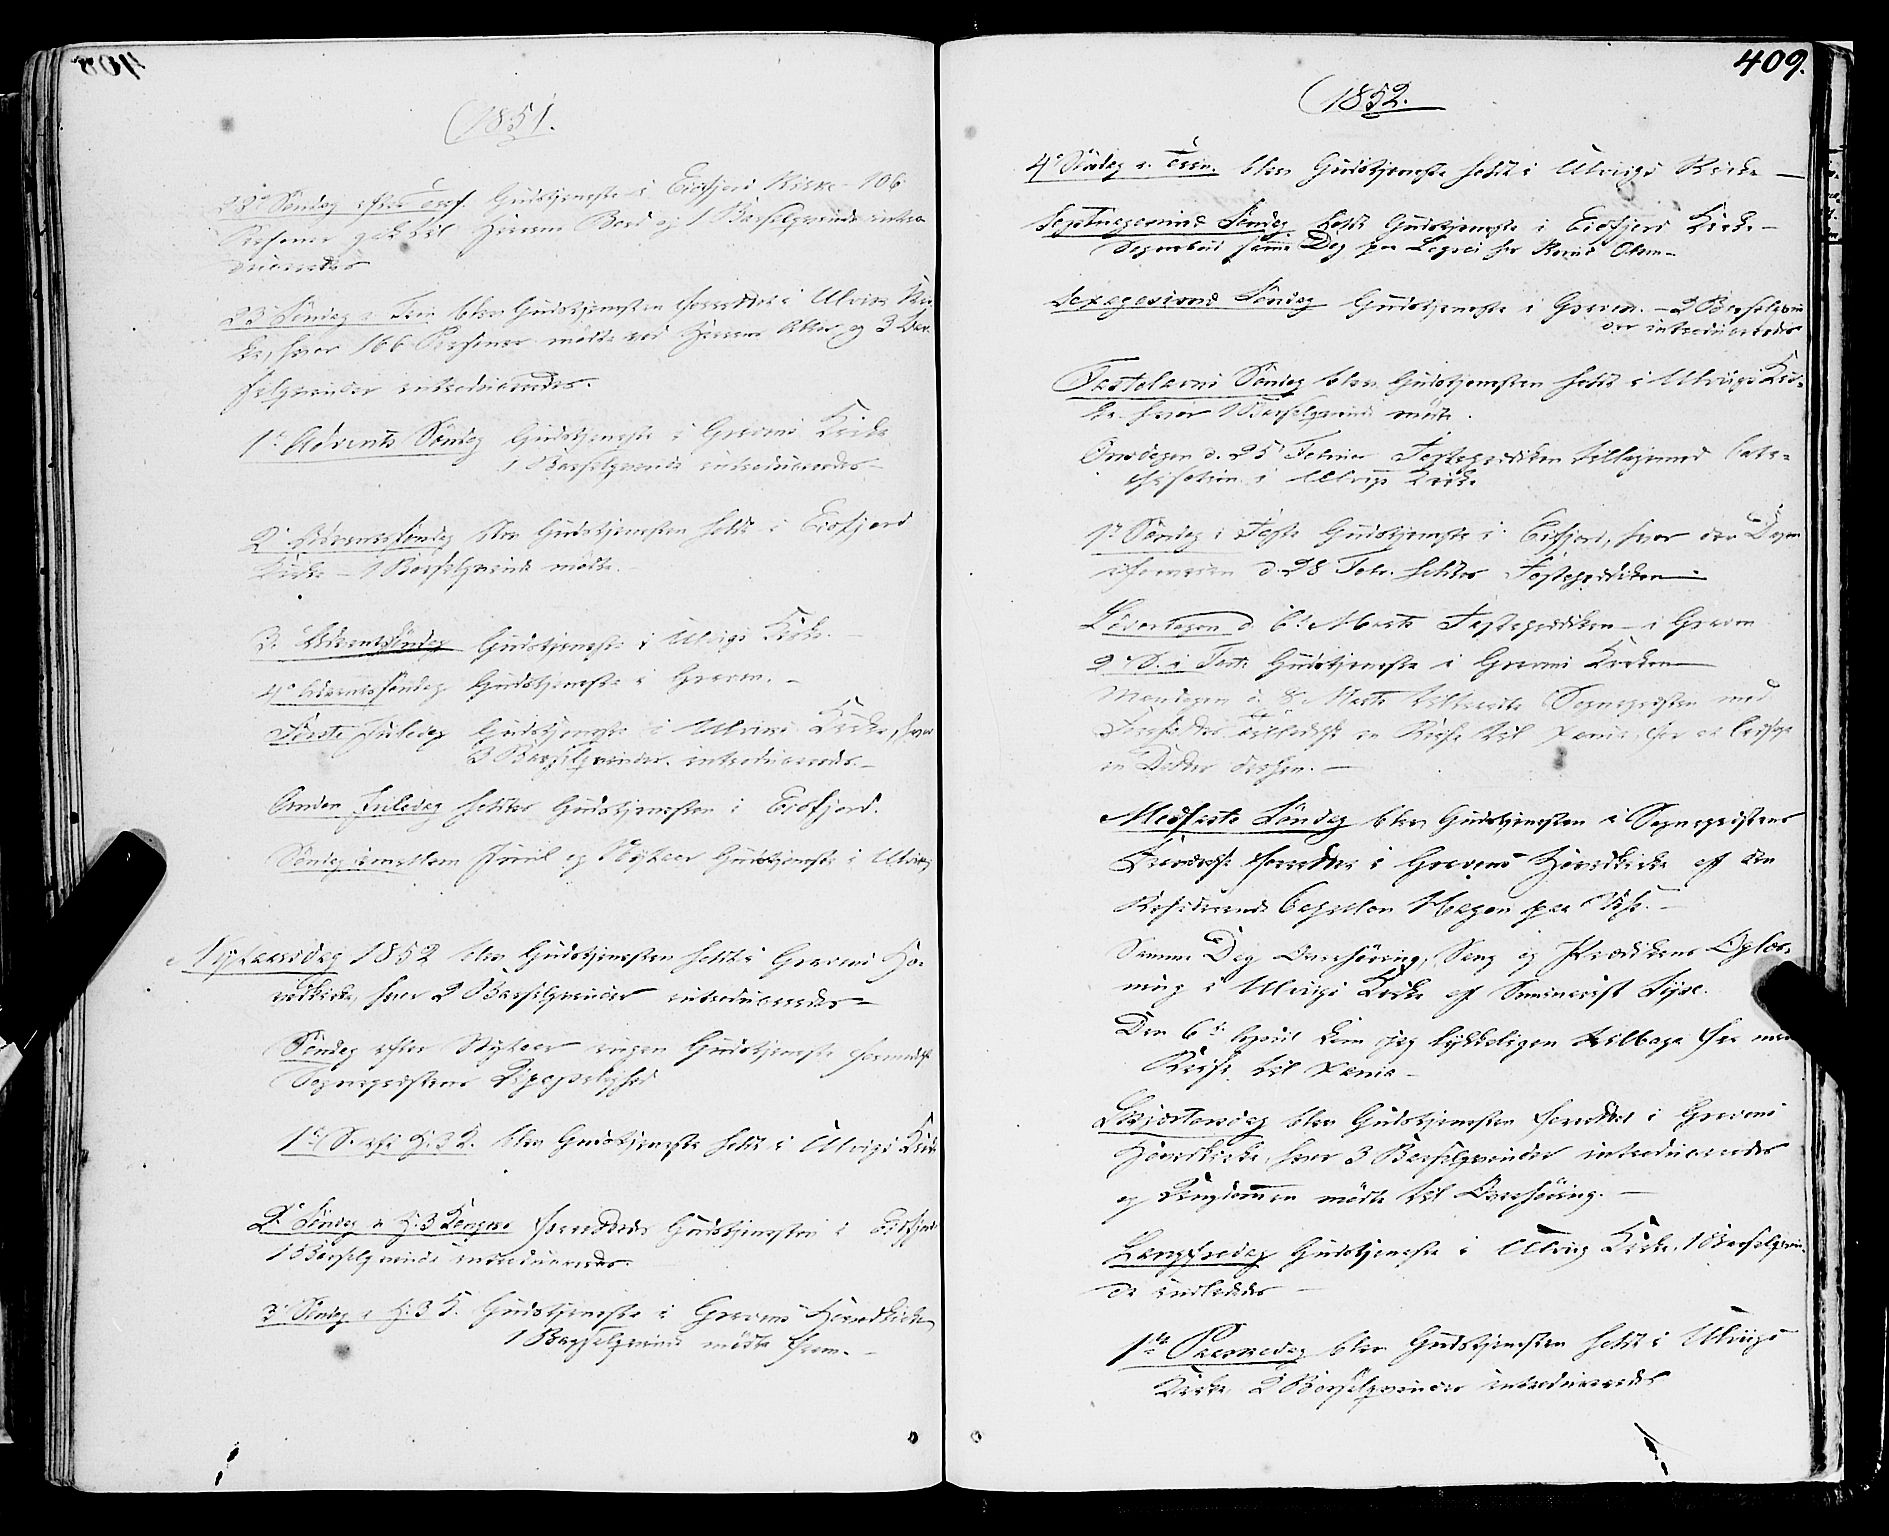 408
1851.
22de Søndag efter Trin. Gudstjeneste i Eidfjord Kirke - 106
Personer gik til Herrens Bord og 1 Barselqvinde intro-
duceredes
23 Søndag e Trin blev Gudstjenesten forrettet i Ulviks Kir-
ke, hvor 166 Personer mødte ved Herrens Alter og 3 Bar-
selqvinder introduceredes.
1e Advents Søndag Gudstjeneste i Gravens Kirke
1 Barselqvinde introduceredes -
2 Adventssøndag blev Gudstjenesten holdt i Eidfjord
Kirke - 1 Barselqvinde mødte. -
3. Adventssøndag Gudstjeneste i Ulvigs Kirke.
4de Adventssøndag Gudstjeneste i Graven. -
Første Juledag Gudstjeneste i Ulvigs Kirke, hvor
3 Barselqvinder introduceredes. -
Anden Juledag holdtes Gudstjenesten i Eidfjord.
Søndag imellem Juul og Nytaar Gudstjeneste i Ulvig
Nytaarsdag 1852 blev Gudstjenesten holdt i Gravens Ho-
vedkirke, hvor 2 Barselqvinder introduceredes -
Søndag efter Nytaar ingen Gudstjeneste formedelst
Sognepræstens Upasselighed
1ste S. eft H. 3 K. blev Gudstjeneste holdt i Ulvigs Kirke
2de Søndag e H. 3 Konger forrettedes Gudstjenesten i Eidfjord
1 Barselqvinde introduceredes.
3 Søndag e H. 3 K. Gudstjeneste i Gravens Hovedkirke
1 Barselqvinde mødte frem. -
409.
1852.
4de Søndag e. blev Gudstjeneste holdt i Ulvigs Kirke -
Septuagesima Søndag holdt Gudstjeneste i Eidfjord Kirke -
samme Dag paa for Olsen -
Sexagesima Søndag Gudstjeneste i Graven. - 2 Barselqvin
der introduceredes
Fastelavns Søndag blev Gudstjenesten holdt i Ulvigs Kir-
ke hvor 1 Barselqvinde mødte.
Onsdagen d. 25 Februar Fasteprædiken tilligemed Cate-
chisation i Ulvigs Kirke
1ste Søndag i Faste Gudstjeneste i Eidfjord, hvor der Dagen
iforveien d. 28 Febr. holdtes Fasteprædiken -
Løverdagen d 6te Marts Fasteprædiken i Graven
2 S. i Faste Gudstjeneste i Gravens Kirke -
Mandagen d. 8 Marts tiltraadte Sognepræsten med
en Reise til Xania, for at ledsage
en Datter dersen. -
Midfaste Søndag blev Gudstjenesten i Sognepræstens
Fraværelse forrettet i Gravens Hovedkirke af den
Residerende Capellan Magen paa Voss. -
Samme Dag Overhøring, Sang og Prædikens Oplæs-
ning i Ulvigs Kirke af Seminarist Lysne.
Den 6te April kom jeg lykkeligen tilbage fra min
Reise til Xania -
Skjærtorsdag blev Gudstjenesten forrettet i Gravens
Hovedkirke, hvor 3 Barselqvinder introduceredes
og Ungdommen mødte til Overhøring. -
Langfredag Gudstjeneste i Ulvig Kirke, 1 Barselqvin-
de indlededes -
1ste Paaskedag blev Gudstjenesten holdt i Ulvigs
Kirke 2 Barselqvinder introduceredes